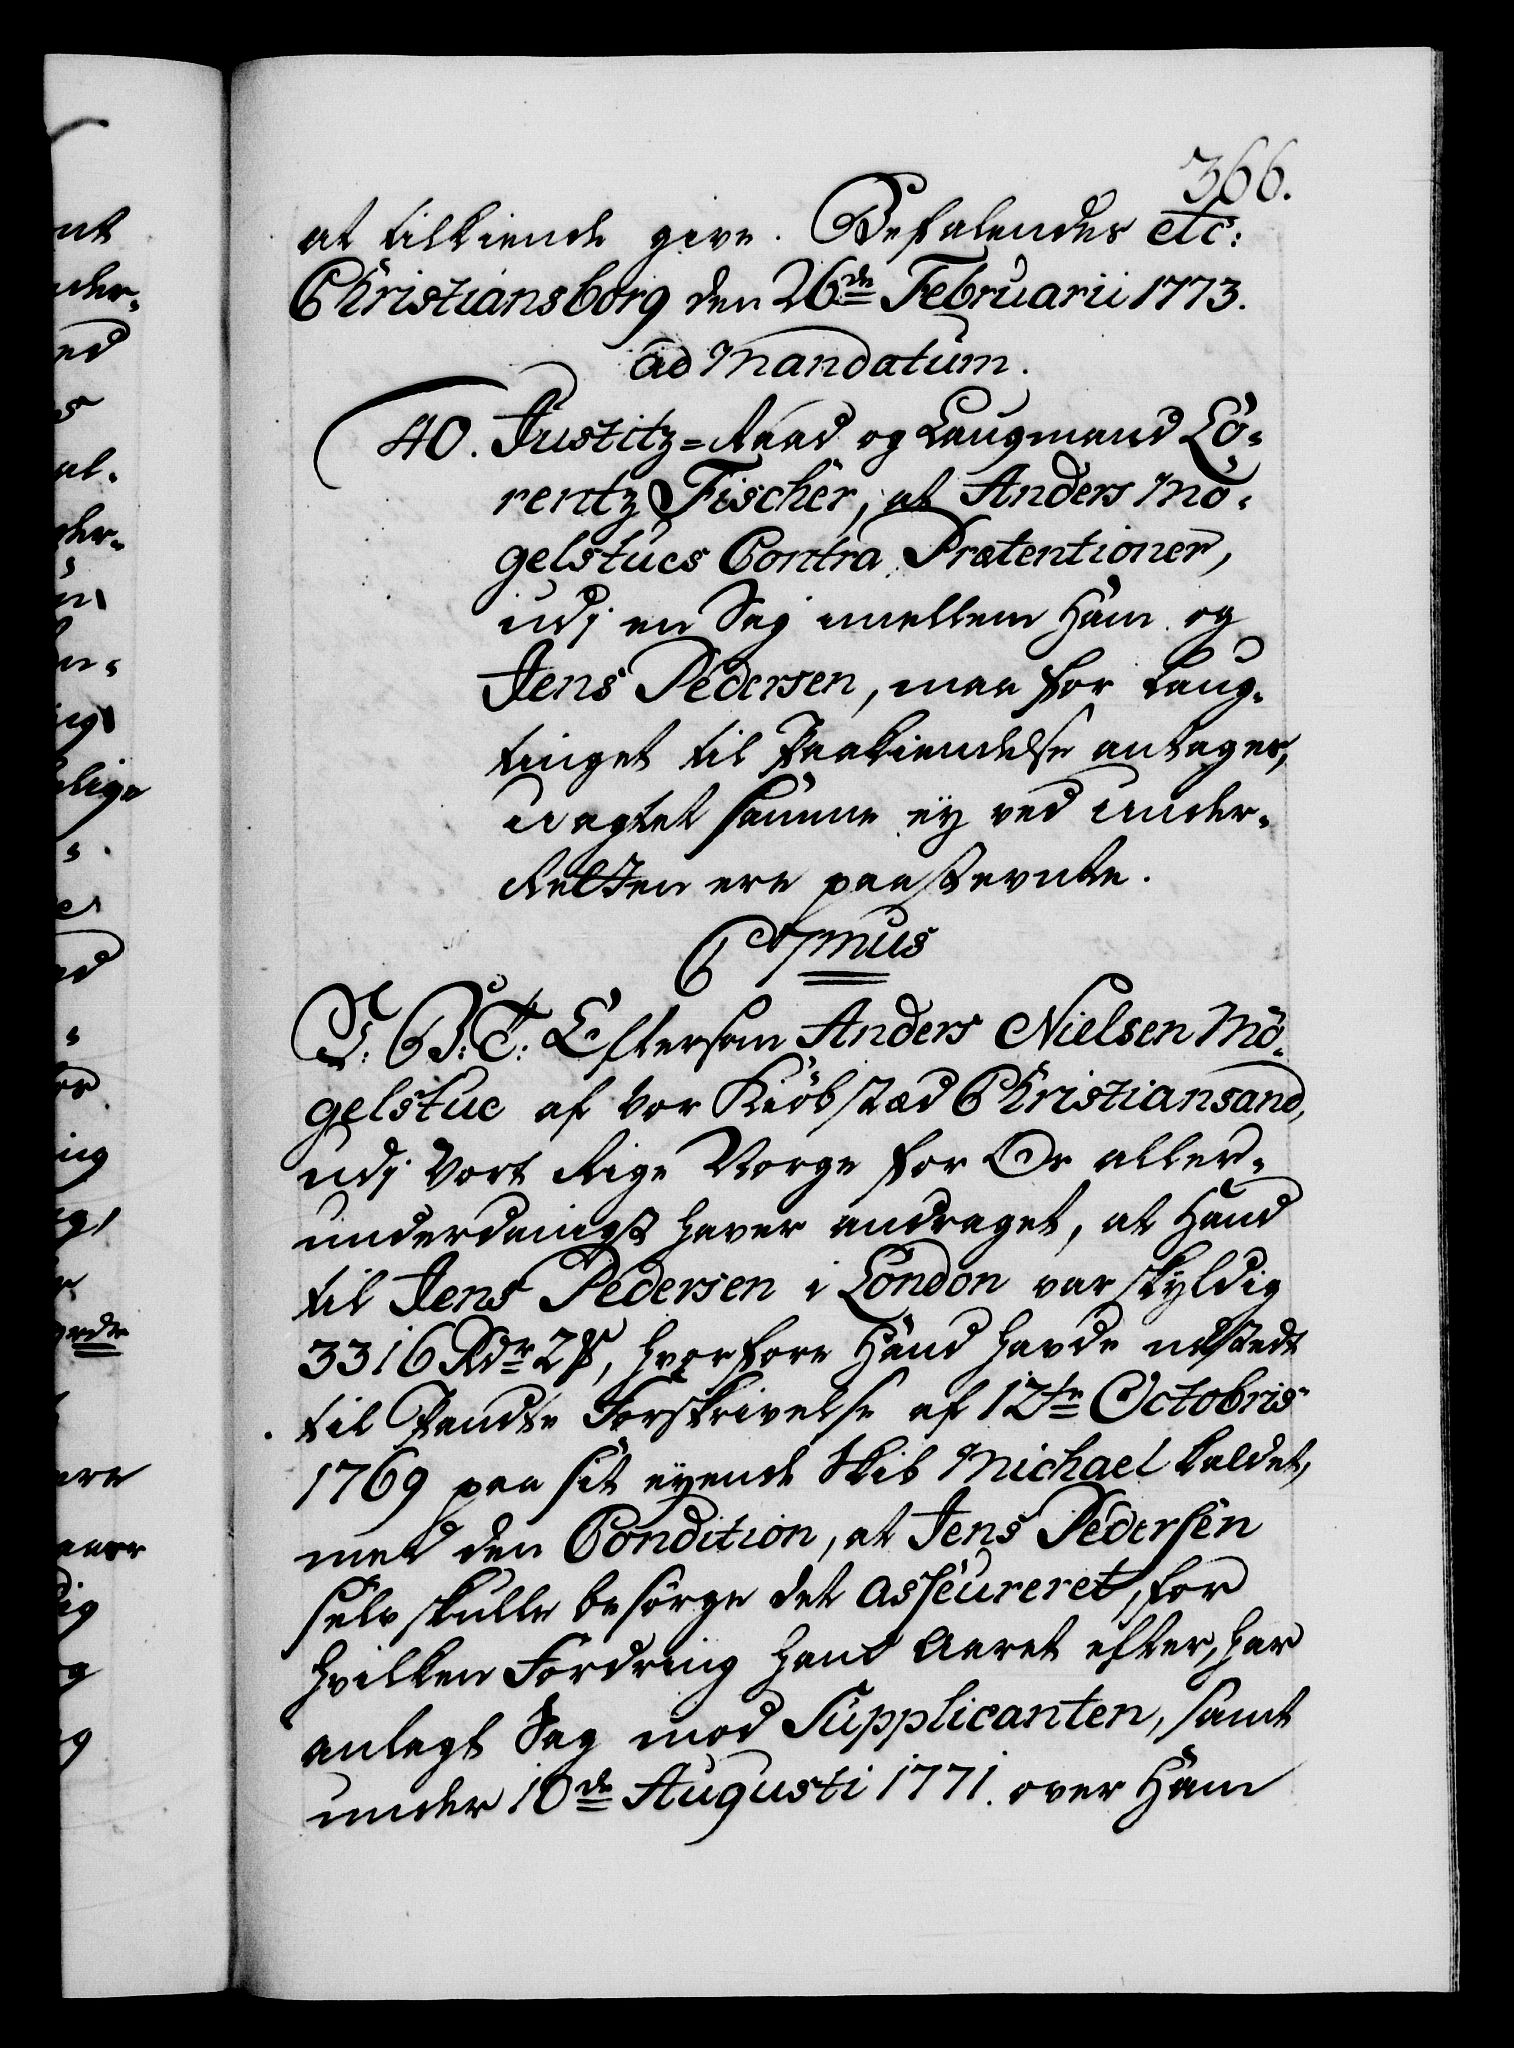 366.
at tilkiende give. Befalendes etc:
Christiansborg den 26de Februarii 1773.
ad Mandatum.
40. Justitz=Raad og Laugmand Lo-
rentz Fischer, at Anders Mö-
gelstues Contra Prætentioner,
udj en Sag imellem Ham og
Jens Pedersen, maa for Laug-
tinget til Paakiendelse antages,
uagtet samme ey ved Under-
Retten ere paastevnte.
C 7mus
G. B: T: Eftersom Anders Nielsen Mö-
gelstue af vor Kiöbstæd Christiansand,
udj Vort Rige Norge for Os aller-
underdanigst haver andraget, at Hand
til Jens Pedersen i London var skyldig
3316 Rdr 2 ß, hvorfore Hand havde udstedt
til Pandte Forskrivelse af 12te Octobris
1769 paa sit eyende Skib Michael kaldet,
med den Condition, at Jens Pedersen
selv skulle besörge det asseureret, for
hvilken Fordring hand Aaret efter, har
anlagt Sag mod Supplicanten, samt
under 10de Augusti 1771. over Ham